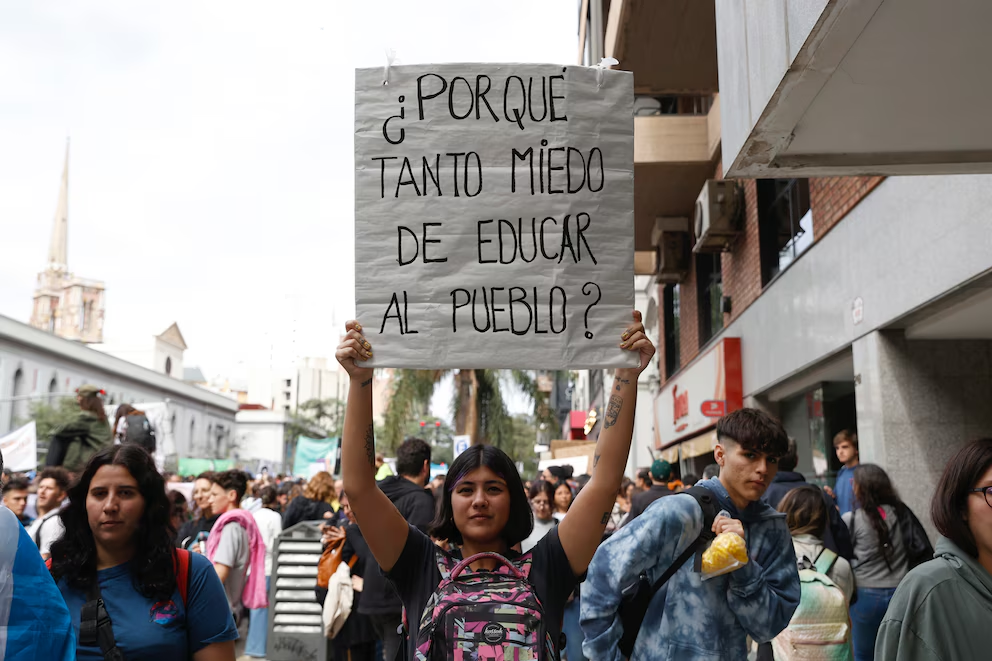 ¿PORQUÉ
TANTO MIEDO
DE EDUCAR
AL PUEBLO?